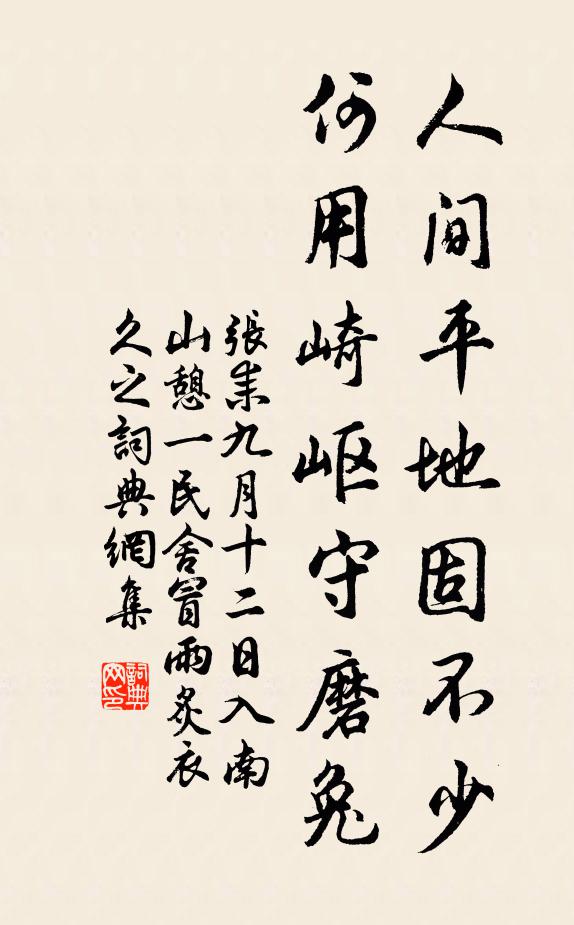 人间平地固不少
何用崎岖守磨兔
張耒九月十二日入南
山憩一民舍冒雨炙衣
久之詞典網集
詞典
网印